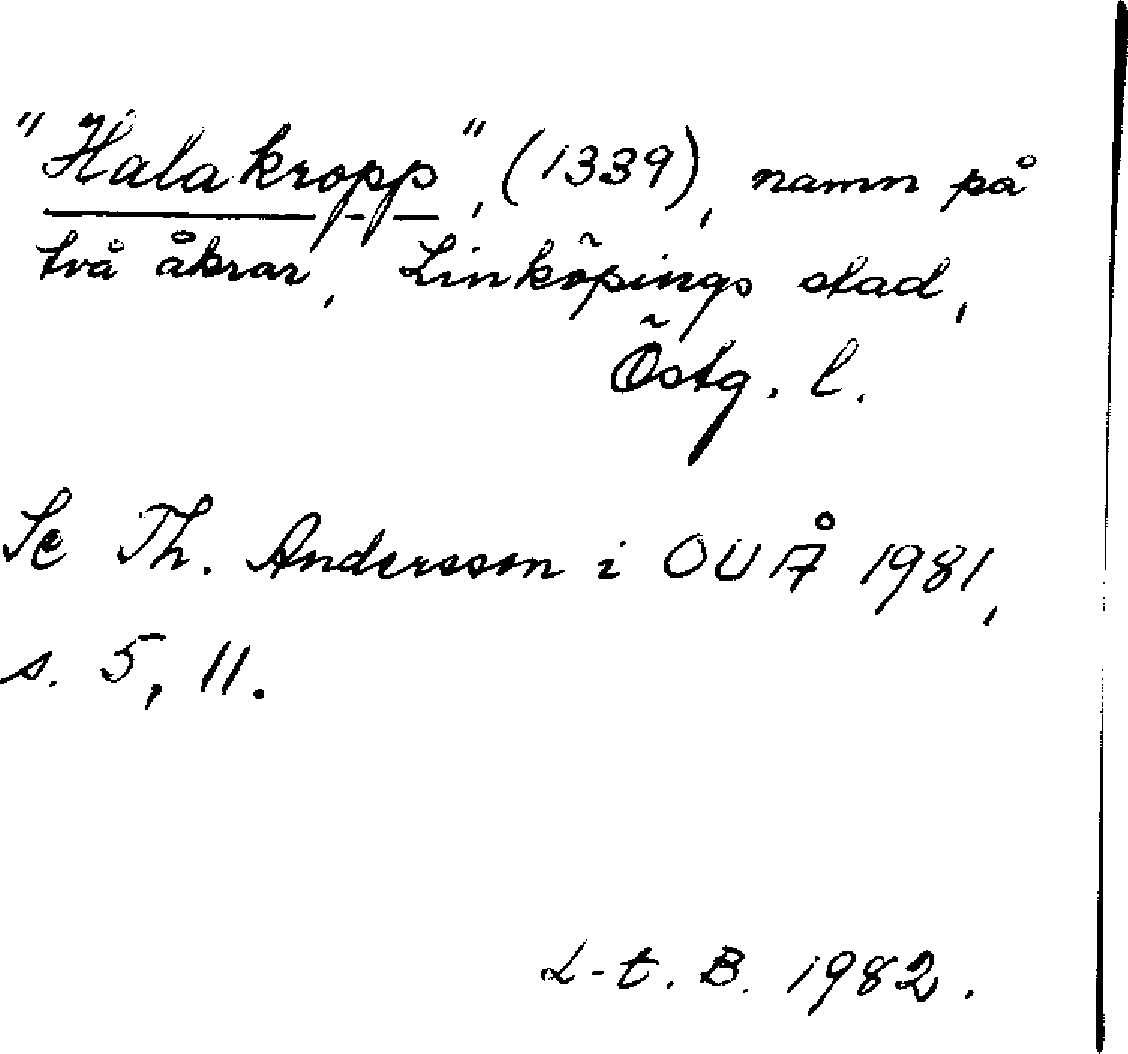 "Halakropp", (1339), namn på
två åkrar, Linköpings stad,
Östg. l.
Se Th. Andersson i OUÅ 1981,
s. 5, 11.
L-t. B. 1982.